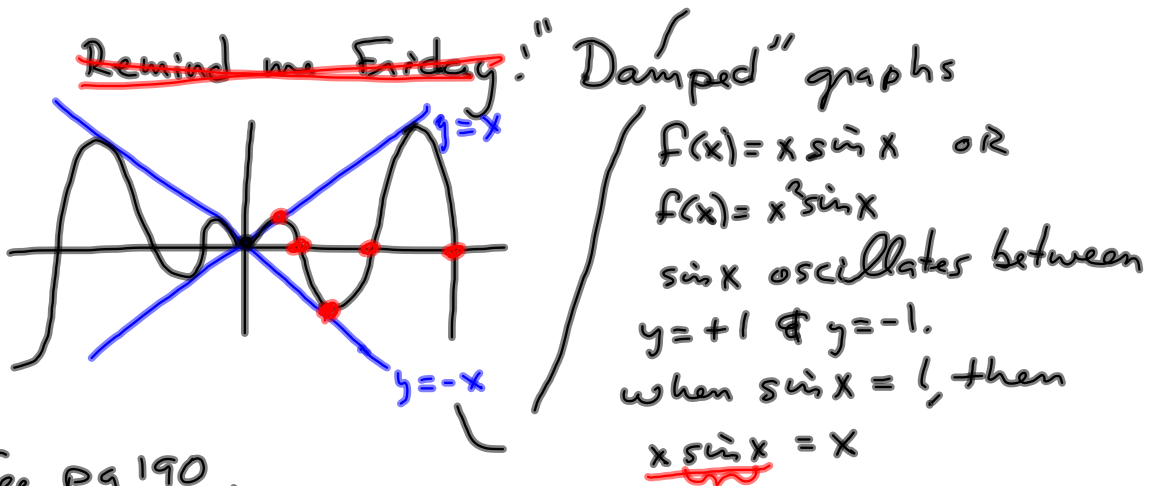 Remind me Friday: "Damped" graphs
y = x
y = -x
f(x) = x sin x or
f(x) = x² sin x
sin x oscillates between
y = +1 & y = -1.
when sin x = 1, then
x sin x = x
pg 190.